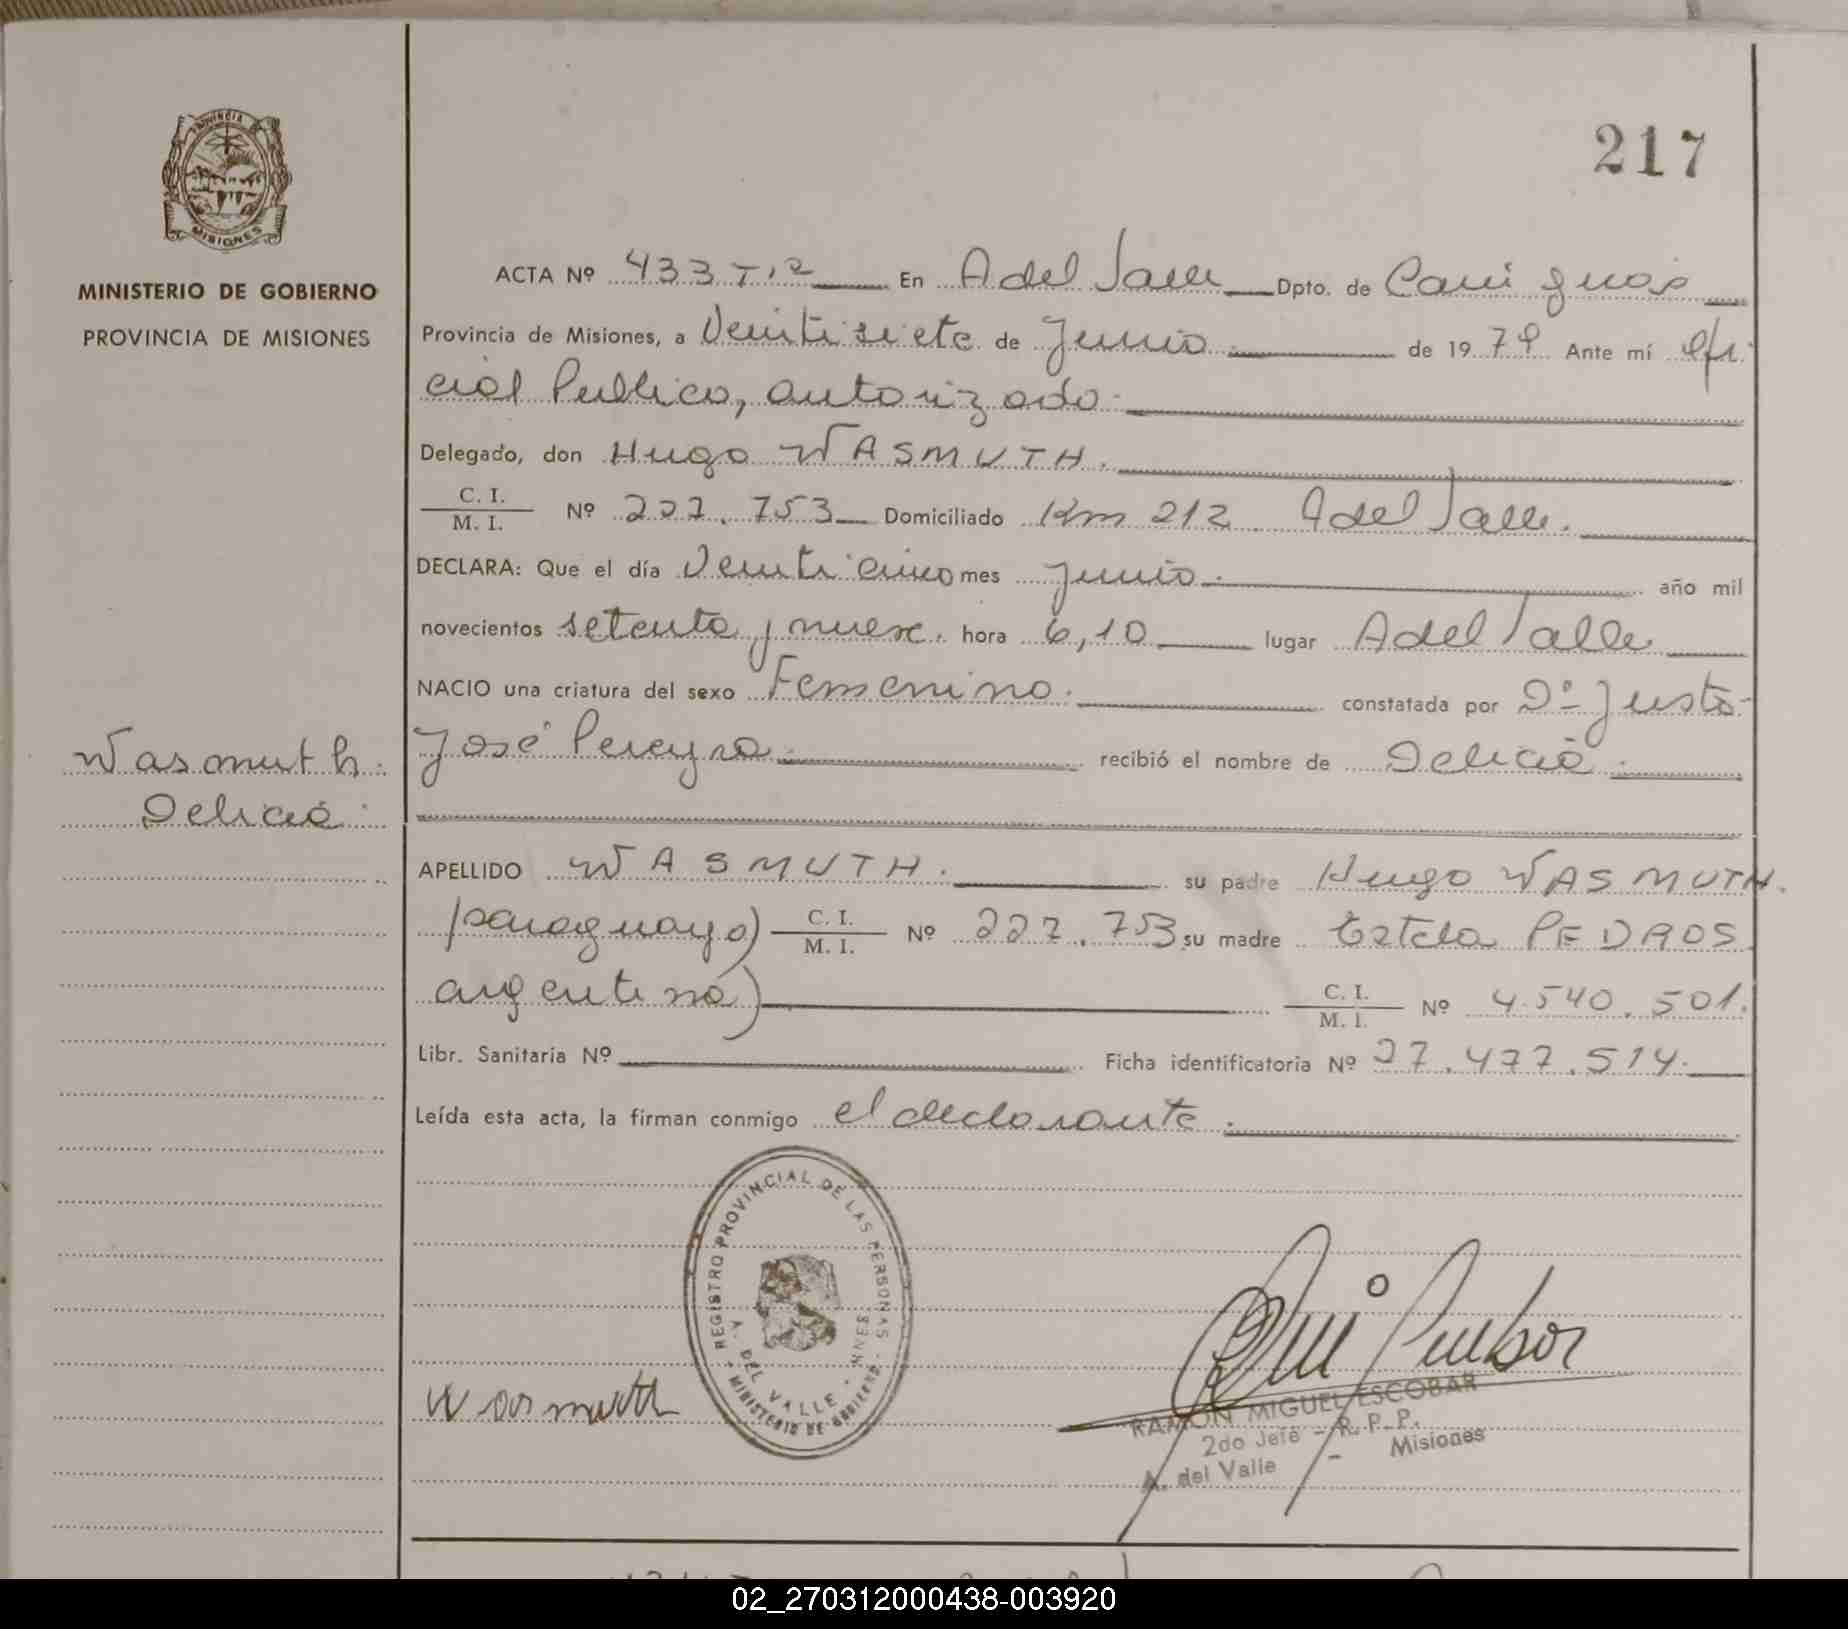 217
PROVINCIA
MISIONES
MINISTERIO DE GOBIERNO
PROVINCIA DE MISIONES
ACTA Nº 433 T.12 En A del Valle Dpto. de Cainguás
Provincia de Misiones, a Veintisiete de Junio de 1979 Ante mí Ofi-
cial Publico, autorizado.
Delegado, don Hugo WASMUTH.
C. I.
M. I. Nº 227.753 Domiciliado Km 212 A del Valle.
DECLARA: Que el día Veinticinco mes junio. año mil
novecientos setenta y nueve. hora 6,10 lugar A del Valle
NACIO una criatura del sexo Femenino. constatada por Dº Justo
José Pereyra. recibió el nombre de Delicia.
Wasmuth.
Delicia.
APELLIDO WASMUTH. su padre Hugo WASMUTH.
(paraguayo) C. I.
M. I. Nº 227.753 su madre Estela PEDROS
argentina) C. I.
M. I. Nº 4.540.501.
Libr. Sanitaria Nº Ficha identificatoria Nº 27.477.514.
Leída esta acta, la firman conmigo el declarante.
REGISTRO PROVINCIAL DE LAS PERSONAS
A. DEL VALLE - MNES
MINISTERIO DE GOBIERNO
Wasmuth
RAMON MIGUEL ESCOBAR
2do Jefe - R. P. P.
A. del Valle - Misiones
02_270312000438-003920